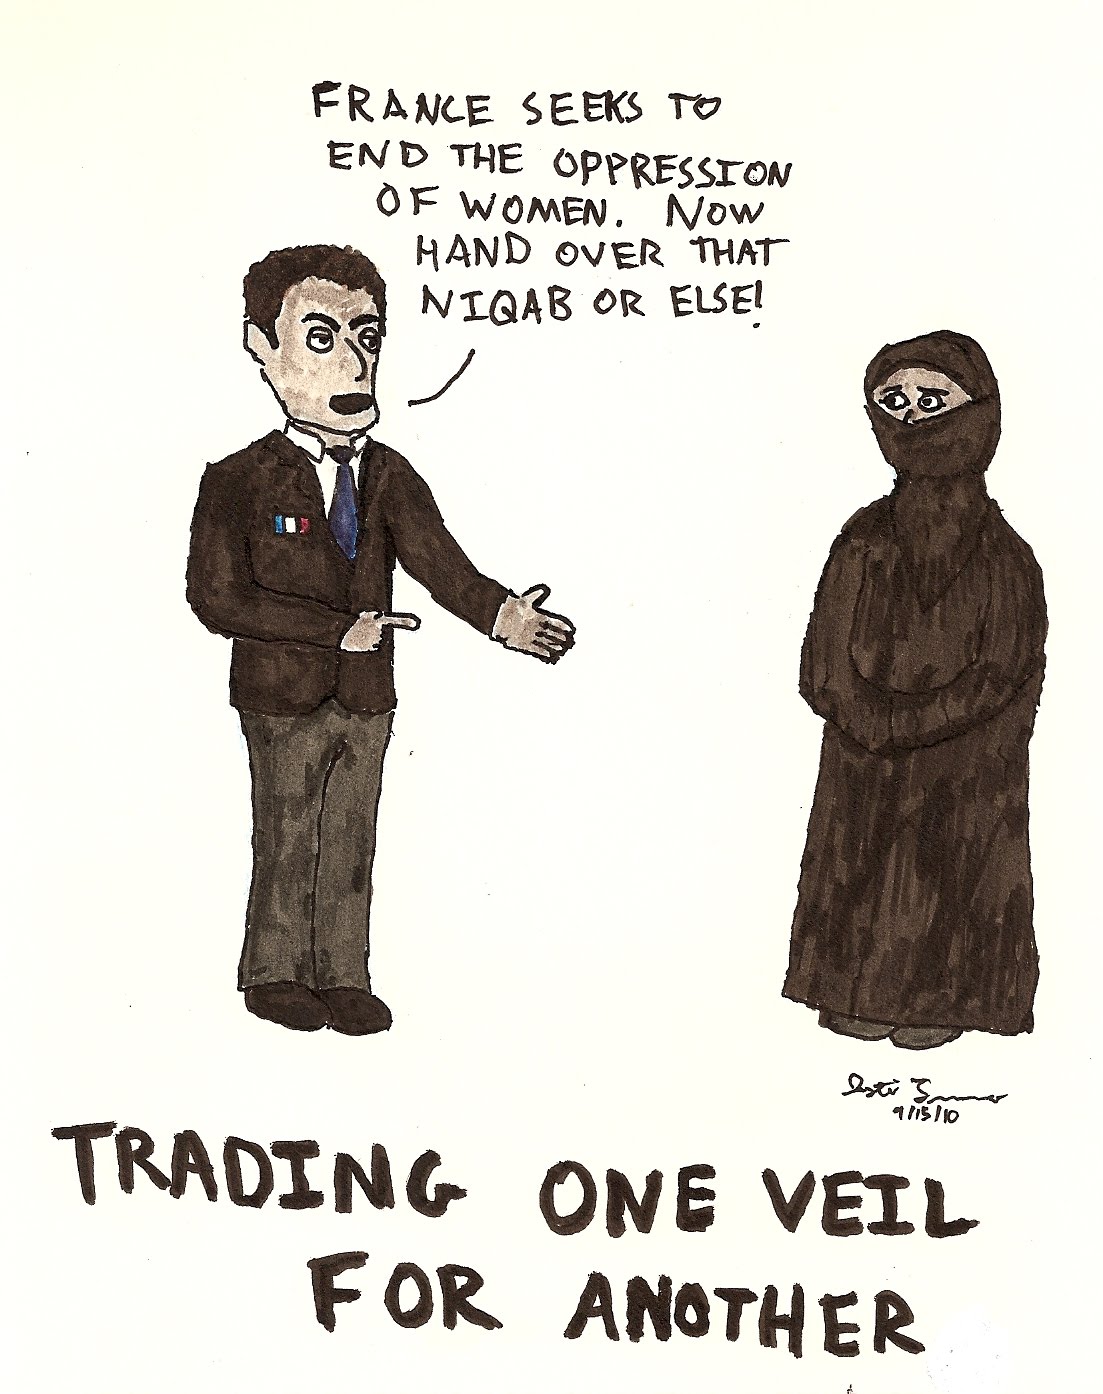 FRANCE SEEKS TO
END THE OPPRESSION
OF WOMEN. NOW
HAND OVER THAT
NIQAB OR ELSE!
9/15/10
TRADING ONE VEIL
FOR ANOTHER